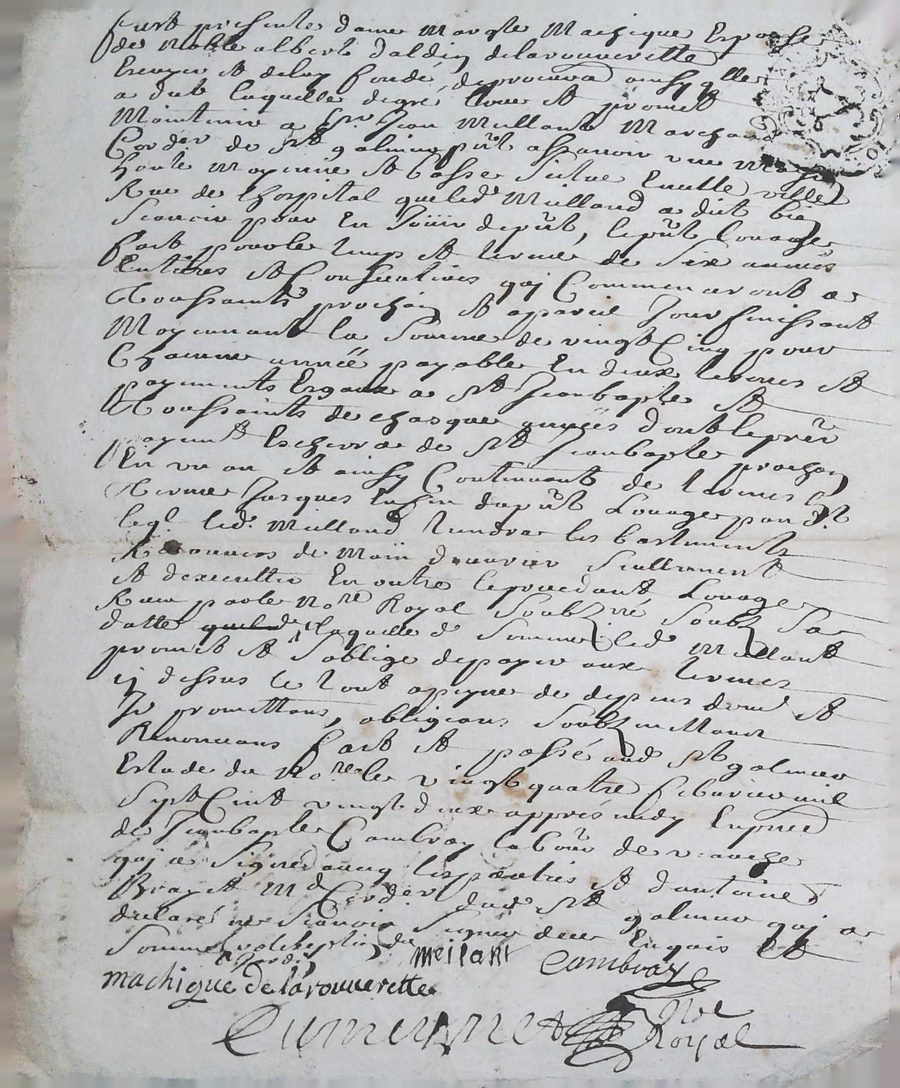 fust presente dame margte machique Espouse
de Noble albert daldin delarouverette
Escuyer et deluy fondé deprocura ainsy qlle
a dict laquelle degré loue et promet
Maintenir a Sr Jean Meillant Marchand
Cordier de St galmier pnt assavoir une
haute moyenne et basse Scitue Enette ville
Rue de lhospital queled Meilland a dict bien
Scavoir pour En Joüir depnt, lepnt louage
fait pour le temps et terme de Six années
Entieres et Consecutives qui Commenceront a
toussaints prochain et apareil Jour finissant
Moyennant la Somme de vingt Cinq pour
Chacune année payable En deux termes et
payements Esgaux a St Jeanbaptte et
toussaints de chasque années dont lepnier
payement Escherra de St Jeanbapte prochain
En un an et ainsy Continuant de termes En
terme Jusques Enfin dupnt Louage pendt
leql led. Meilland tiendra les bastiments
de Main dœuvre Seullement
et dexecutter En outre leprecedant Louage
Receu parle Nore Royal Soubzne Soubz Sa
datte laquelle de Somme led. Meillant
promet et Soblige depayer aux termes
cy dessus le tout apeyne de depens dom. et
Je promettans, obligeans Soubzmettans
Renoncans fait et passé aud St galmier
Estude du Nore le vingt quatre febvrier mil
Sept Cent vingt deux appres midy Enpnce
de Jeanbapte Cambray labour de
qui a Signe avecq les parties et dantoine
Brayet Md Cordier dud St galmier qui a
declaré ne Scavoir Signer dece Enquis et
Sommé
meilant Cambray
machique de larouverette
Nre
Royal